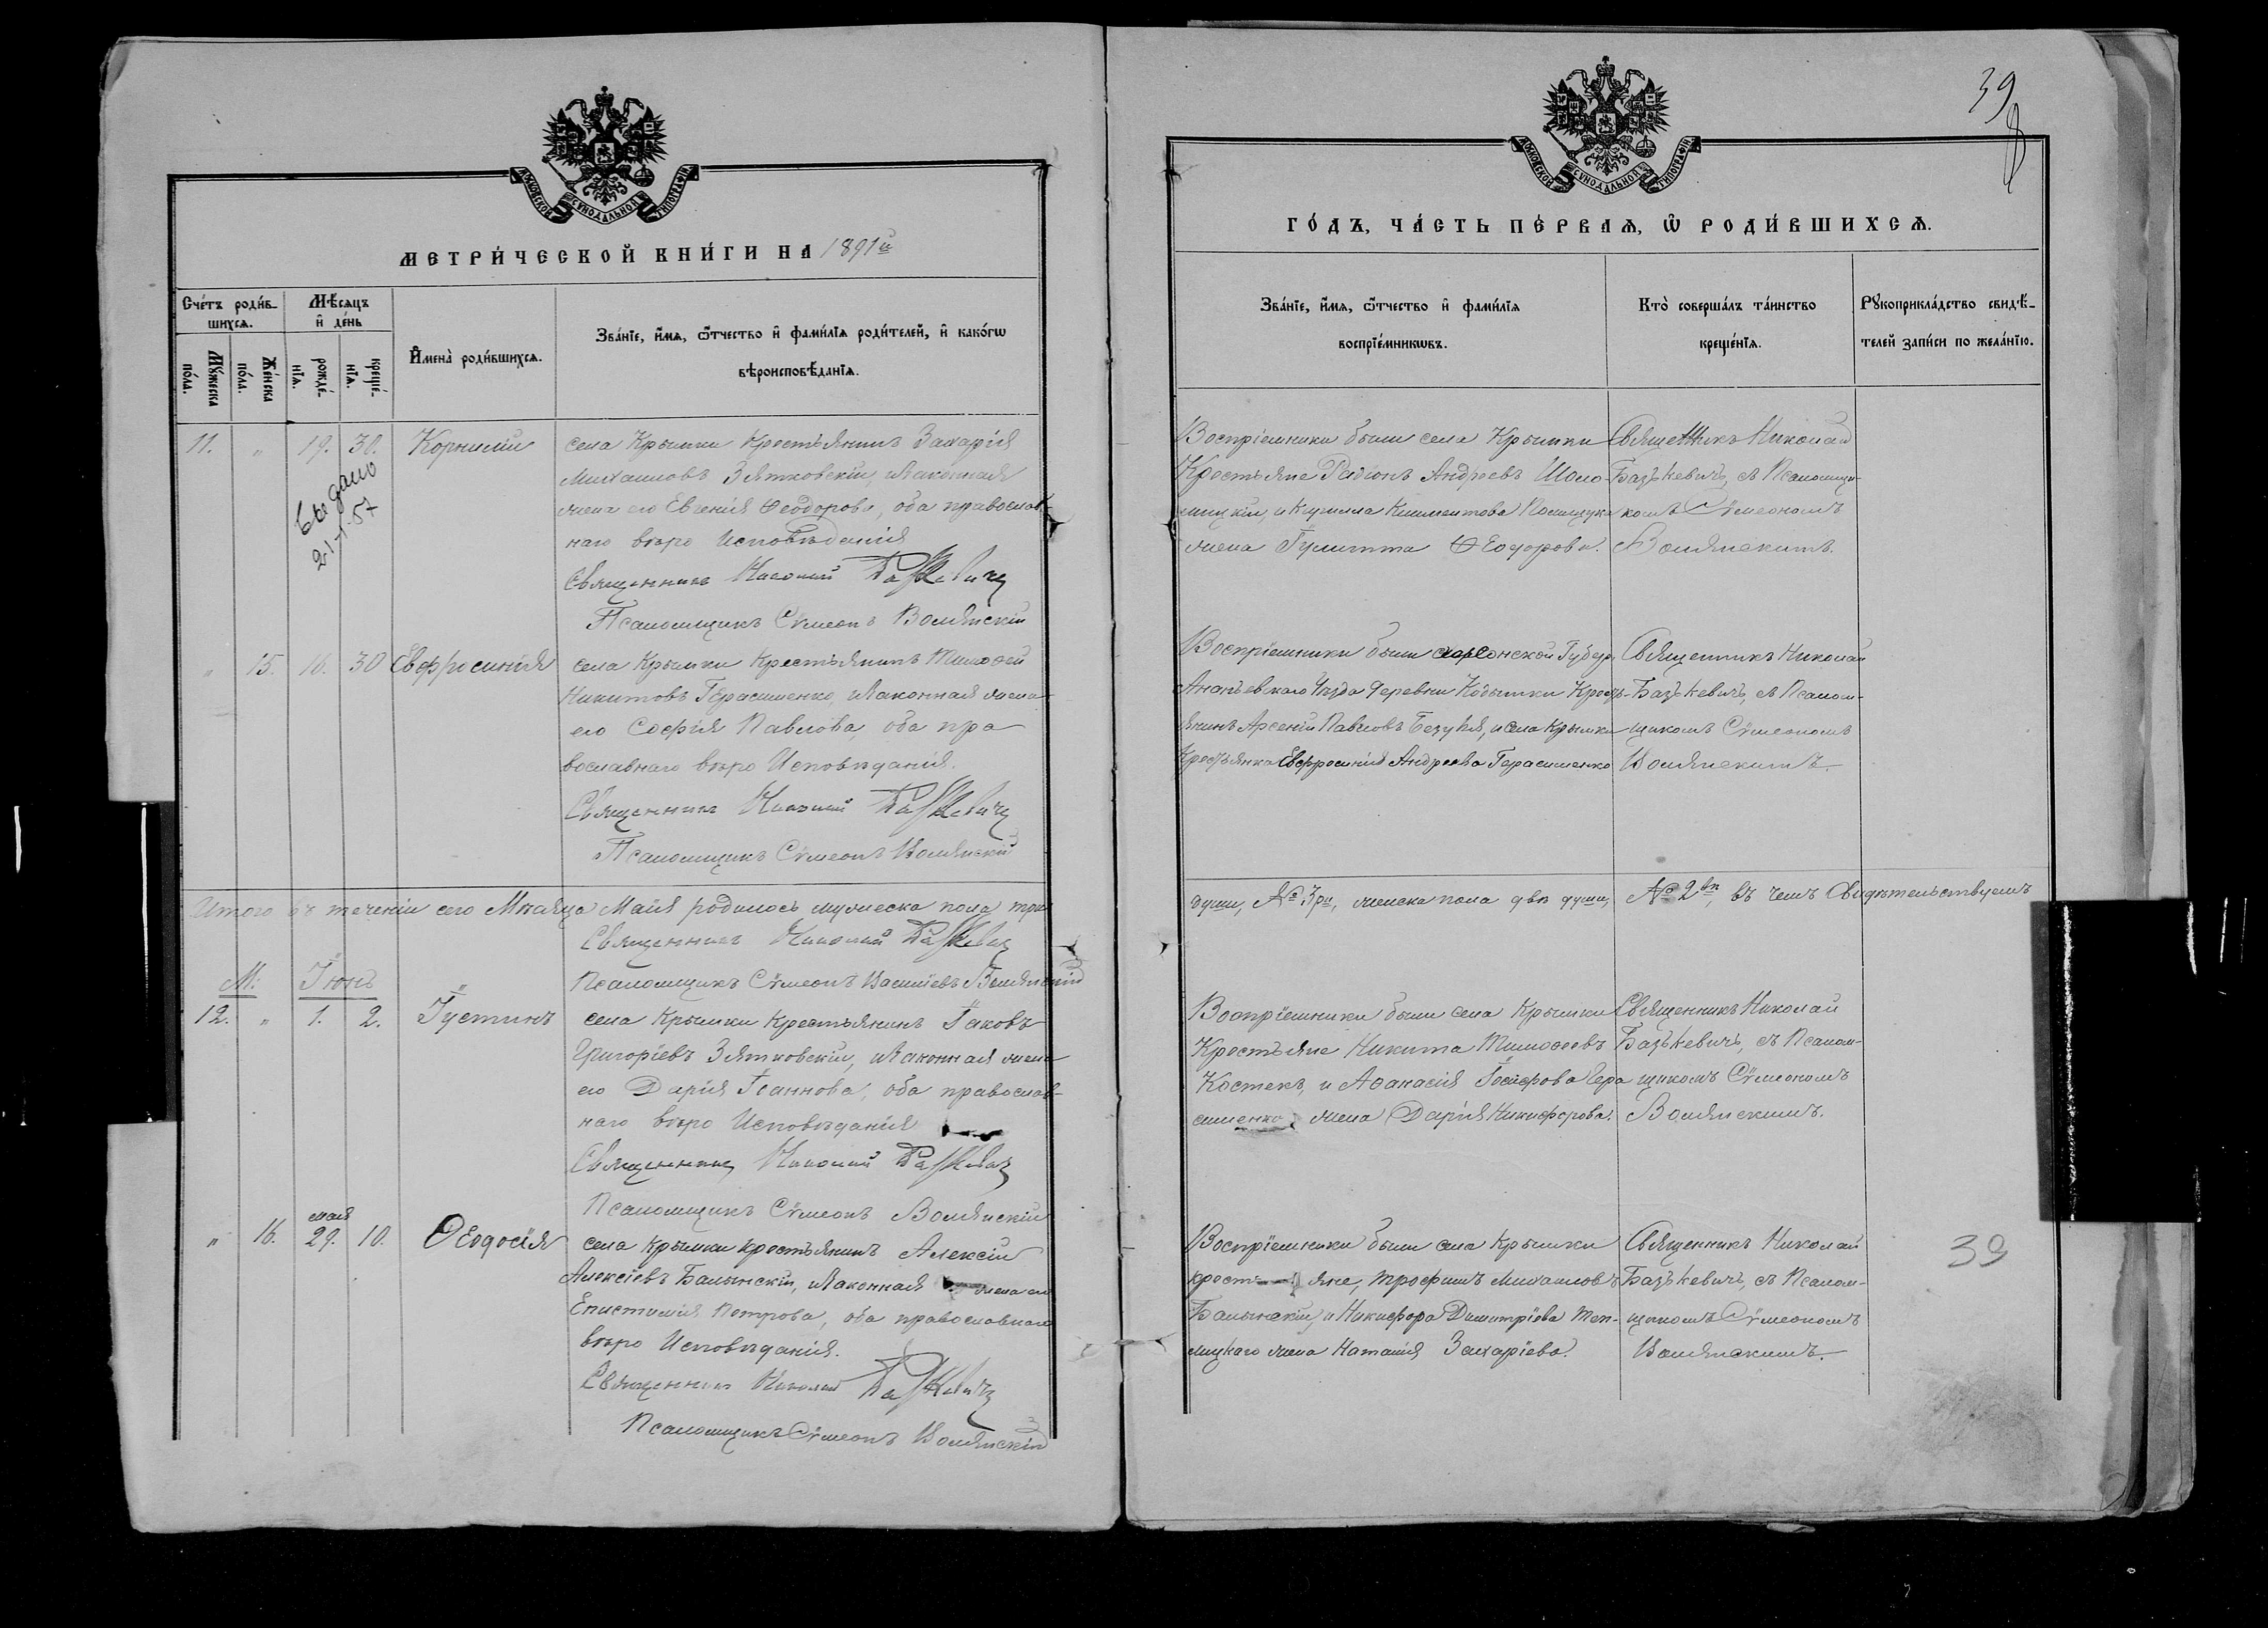 МОСКОВСКОЙ СѴНОДАЛЬНОЙ ТИПОГРАФІИ
МЕТРИ́ЧЕСКОЙ КНИ́ГИ НА 1891й
Сче́тъ роди́в-
шихсѧ.
Мѣ́сѧцъ
и҆ де́нь
Мꙋ́жеска
по́ла.
Же́нска
по́ла.
рожде́-
нїѧ.
креще́-
нїѧ.
И҆мена̀ роди́вшихсѧ.
Зва́нїе, и҆́мѧ, ѻ҆́тчество и҆ фами́лїѧ роди́телей, и҆ како́гѡ
вѣроисповѣ́данїѧ.
11. " 19. 30. Корнилій
села Крымки Крестьянинъ Захарія
Михаиловъ Зятковскій, и Законная
жена его Евгенія Ѳеодорова, оба православ-
наго вѣро Исповѣданія
Выдано
21-I-57
Священникъ Николай Базкевичъ
Псаломщикъ Сѵмеонъ Волянскій
" 15. 16. 30 Евфросинія
села Крымки Крестьянинъ Тимоѳей
Никитовъ Герасименко, и Законная жена
его Софія Павлова, оба пра
вославнаго вѣро Исповѣданія.
Священникъ Николай Базкевичъ
Псаломщикъ Сѵмеонъ Волянскій
Итого въ теченіи сего Мѣсяца Маія родилось мужеска пола три
Священникъ Николай Базкевичъ
Псаломщикъ Сѵмеонъ Василіевъ Волянскій
М: Іюнь
12. " 1. 2. Іустинъ
села Крымки Крестьянинъ Іаковъ
Григоріевъ Зятковскій, и Законная жена
его Дарія Іоаннова, оба православ-
наго вѣро Исповѣданія
Священникъ Николай Базкевичъ
Псаломщикъ Сѵмеонъ Волянскій
мая
" 16. 29. 10. Ѳеодосія
села Крымки крестьянинъ Алексій
Алексіевъ Балынскій, и Законная жена его
Епистимія Петрова, оба православнаго
вѣро Исповѣданія.
Священникъ Николай Базкевичъ
Псаломщикъ Сѵмеонъ Волянскій
39
МОСКОВСКОЙ СѴНОДАЛЬНОЙ ТИПОГРАФІИ
ГО́ДЪ, ЧА́СТЬ ПЕ́РВАѦ, Ѡ҆ РОДИ́ВШИХСѦ.
Зва́нїе, и҆́мѧ, ѻ҆́тчество и҆ фами́лїѧ
воспрїе́мникѡвъ.
Кто̀ соверша́лъ та́инство
креще́нїѧ.
Рꙋкоприкла́дство свидѣ́-
телей за́писи по жела́нїю.
Воспріемники были села Крымки
Крестьяне Радіонъ Андреевъ Шоло-
мицкій, и Кирилла Климентова Полищука
жена Гулитта Ѳеодорова.
Священникъ Николай
Базькевичъ, съ Псаломщи-
комъ Сѵмеономъ
Волянскимъ.
Воспріемники были Херсонской Губер.
Ананьевскаго Уѣзда деревни Кобылки Кресть-
янинъ Арсеній Павловъ Безуля, и села Крымки
Крестьянка Евфросинія Андреева Герасименко
Священникъ Николай
Базькевичъ, съ Псалом-
щикомъ Сѵмеономъ
Волянскимъ.
души, № 3ри, женска пола двѣ души, № 2вѣ, въ чемъ Свидѣтельствуемъ
Воспріемники были села Крымки
Крестьяне Никита Тимоѳеевъ
Костекъ, и Аѳанасія Іосифова Гера
сименко жена Дарія Никифорова.
Священникъ Николай
Базькевичъ, съ Псалом-
щикомъ Сѵмеономъ
Волянскимъ.
Воспріемники были села Крымки
крестьяне, Трофимъ Михаиловъ
Балынскій, и Никифора Димитріева Теп-
лицкаго жена Наталія Захаріева.
Священникъ Николай
Базькевичъ, съ Псалом-
щикомъ Сѵмеономъ
Волянскимъ.
39